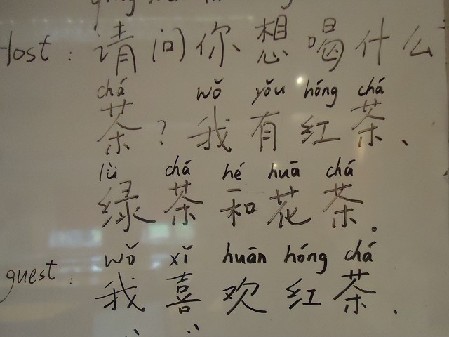 Host: 请问你想喝什么
chá wǒ yǒu hóng chá
茶?我有红茶、
lǜ chá hé huā chá
绿茶和花茶。
guest: wǒ xǐ huān hóng chá
我喜欢红茶.